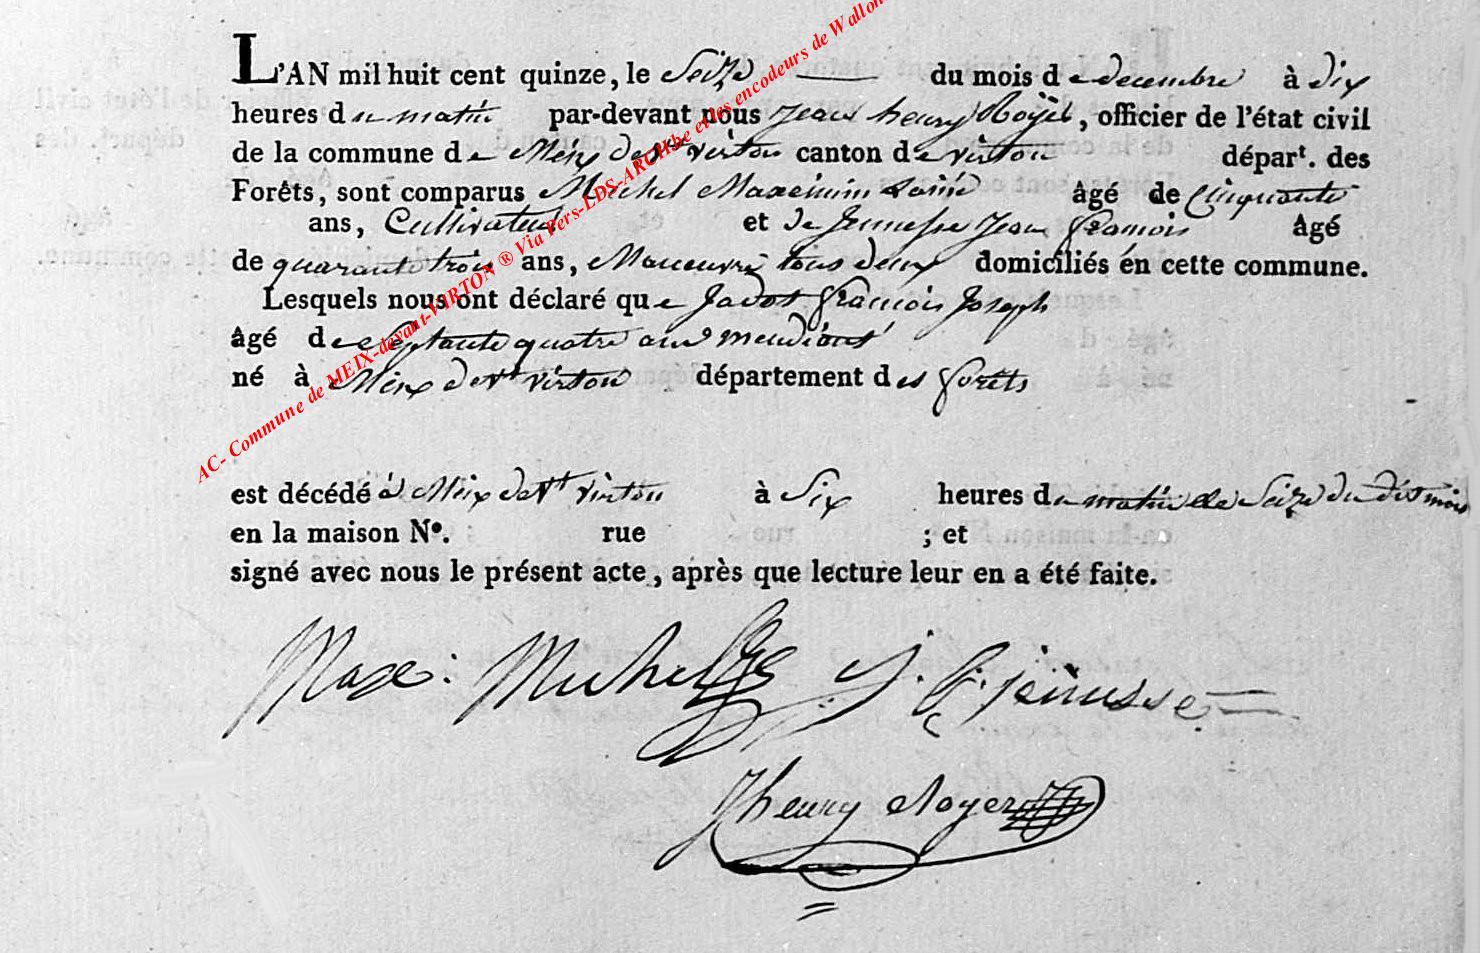 L'AN mil huit cent quinze, le Seize du mois de decembre à dix
heures du matin par-devant nous Jean henry Royer, officier de l'état civil
de la commune de Meix devt virton canton de virtonépart. des
Forêts, sont comparus Michel Maximin L'ainé âgé de Cinquante
ans, Cultivateur et de Jeunesse Jean francois âgé
de quarante trois ans, Maneuvre tous deux domiciliés en cette commune.
Lesquels nous ont déclaré que Jadot francois Joseph
âgé de septante quatre ans mendiant
né à Meix devt virton département des forêts
est décédé à Meix devt virton à Six heures du matin le Seize du dit mois
en la maison Nº. rue ; et
signé avec nous le présent acte, après que lecture leur en a été faite.
Maxi: Michel J. f. jeunesse
J henry Royer
AC- Commune de MEIX-devant-VIRTON ® Via Pers-LDS-ARCHbe et les encodeurs de Wallon